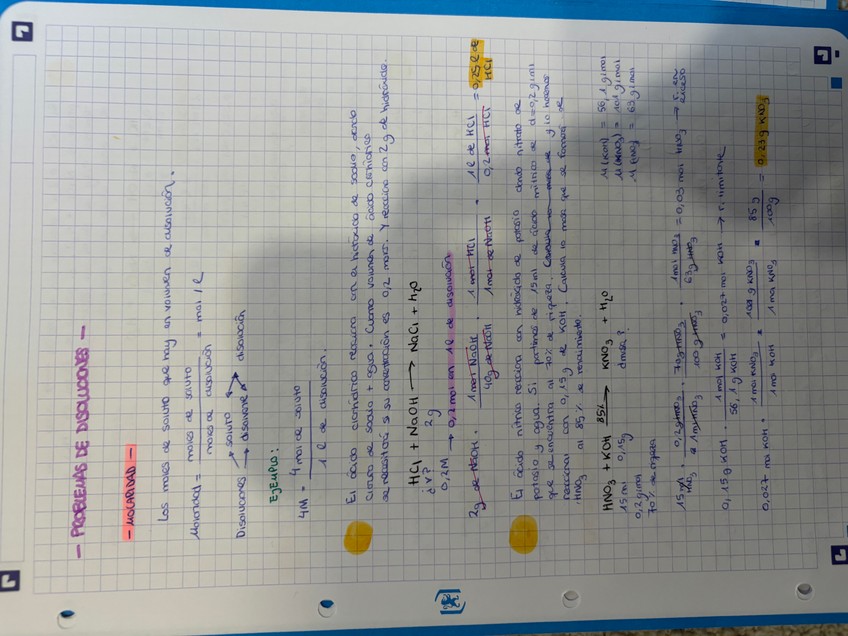 - PROBLEMAS DE DISOLUCIONES -
- MOLARIDAD -
Los moles de soluto que hay en volumen de disolución.
Molaridad = moles de soluto / moles de disolución = mol / l
Disoluciones → soluto → disolución
→ disolvente → disolución
EJEMPLO:
4M = 4 mol de soluto / 1 l de disolución.
El ácido clorhídrico reacciona con el hidróxido de sodio, dando
cloruro de sodio + agua. Cuanto volumen de ácido clorhídrico
se necesitará si su concentración es 0,2 molar. Y reacciona con 2g de hidróxido.
HCl + NaOH → NaCl + H2O
¿V? 2g
0,2M → 0,2 mol en 1l de disolución
2g de NaOH · 1 mol NaOH / 40g de NaOH · 1 mol HCl / 1 mol de NaOH · 1l de HCl / 0,2 mol HCl = 0,25 l de HCl
El ácido nítrico reacciona con hidróxido de potasio dando nitrato de
potasio y agua. Si partimos de 15 ml de ácido nítrico de d=0,2 g/ml
que se encuentra al 70% de riqueza. y lo hacemos
reaccionar con 0,15g de KOH. Calcula la masa que se formará de
HNO3 al 85% de rendimiento.
M(KOH) = 56,1 g/mol
M(KNO3) = 101 g/mol
M HNO3 = 63 g/mol
HNO3 + KOH 85% → KNO3 + H2O
15 ml 0,15g ¿masa?
0,2 g/ml
70% de riqueza
15 ml HNO3 · 0,2 g HNO3 / 1 ml HNO3 · 70g HNO3 / 100 g HNO3 · 1 mol HNO3 / 63 g HNO3 = 0,03 mol HNO3 → r. en exceso
0,15 g KOH · 1 mol KOH / 56,1 g KOH = 0,027 mol KOH → r. limitante
0,027 mol KOH · 1 mol KNO3 / 1 mol KOH · 101 g KNO3 / 1 mol KNO3 · 85 g / 100g = 0,23 g KNO3